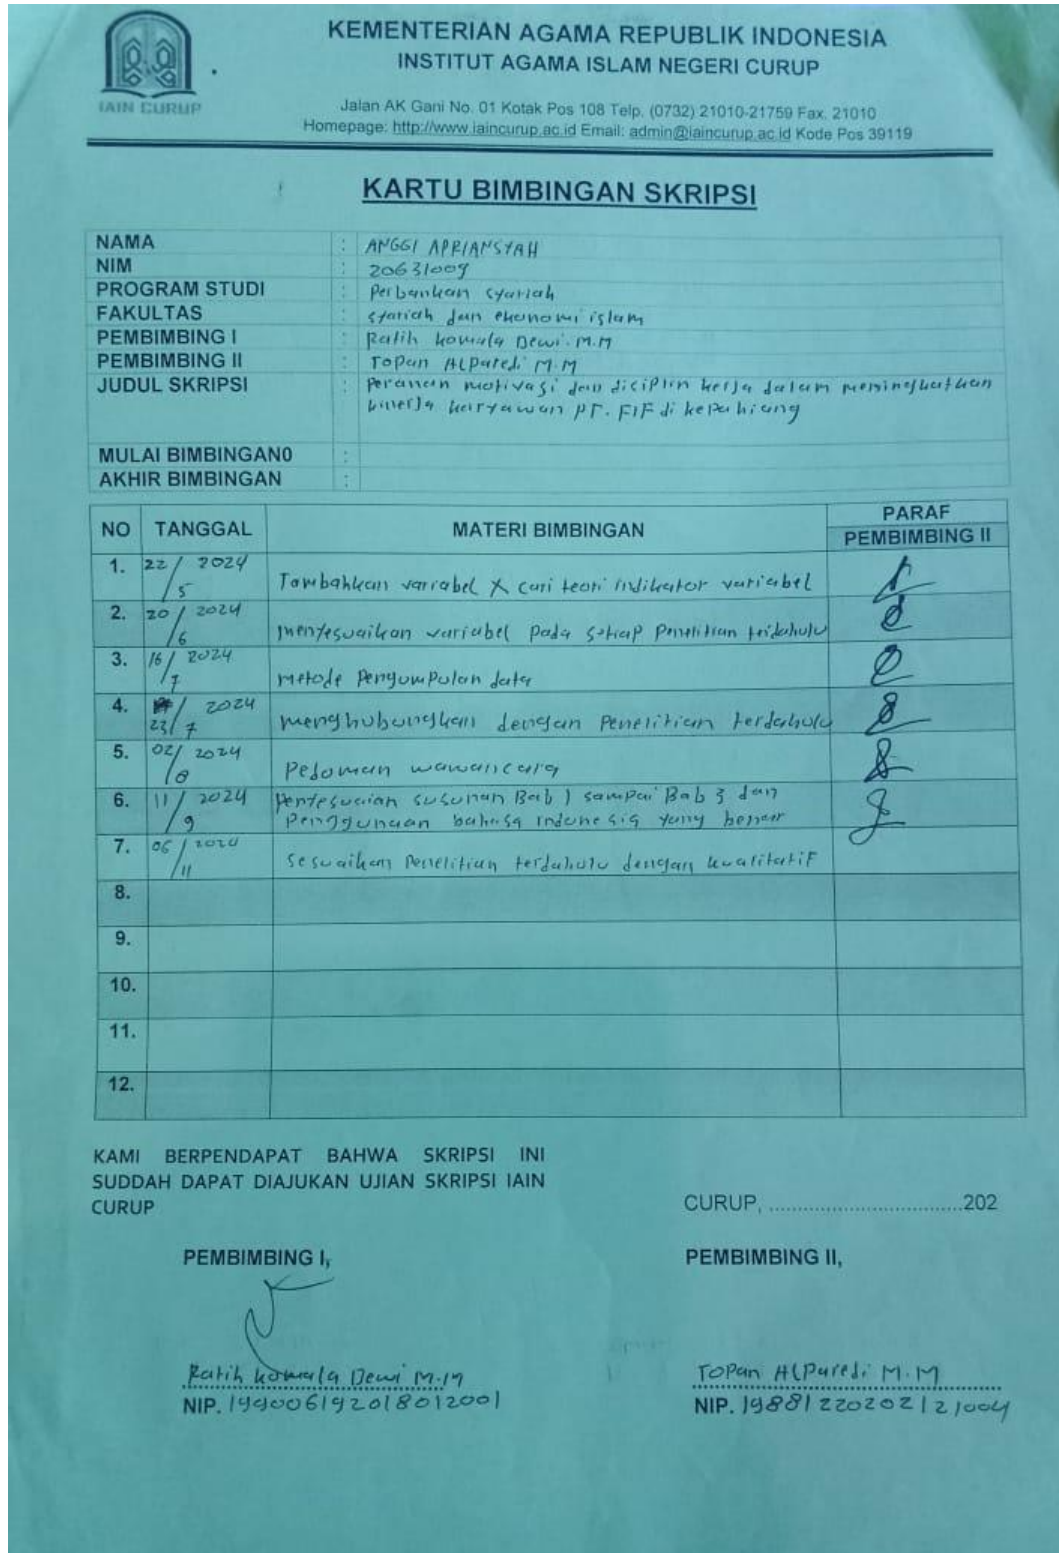 IAIN CURUP
KEMENTERIAN AGAMA REPUBLIK INDONESIA
INSTITUT AGAMA ISLAM NEGERI CURUP
Jalan AK Gani No. 01 Kotak Pos 108 Telp. (0732) 21010-21759 Fax. 21010
Homepage: http://www.iaincurup.ac.id Email: admin@iaincurup.ac.id Kode Pos 39119
KARTU BIMBINGAN SKRIPSI
NAMA : ANGGI APRIANSYAH
NIM : 20631009
PROGRAM STUDI : Perbankan syariah
FAKULTAS : syariah dan ekonomi islam
PEMBIMBING I : Ratih komala Dewi. M.M
PEMBIMBING II : Topan ALparedi M.M
JUDUL SKRIPSI : Peranan motivasi dan disiplin kerja dalam meningkatkan
kinerja karyawan PT. FIF di kepahiang
MULAI BIMBINGAN0 :
AKHIR BIMBINGAN :
NO TANGGAL MATERI BIMBINGAN PARAF
PEMBIMBING II
1. 22/5 2024 Tambahkan variabel X cari teori indikator variabel
2. 20/6 2024 menyesuaikan variabel pada setiap Penelitian terdahulu
3. 16/7 2024 metode Pengumpulan data
4. 23/7 2024 menghubungkan dengan Penelitian terdahulu
5. 02/8 2024 Pedoman wawancara
6. 11/9 2024 Penyesuaian susunan Bab 1 sampai Bab 3 dan
Penggunaan bahasa indonesia yang benar
7. 06/11 2024 sesuaikan Penelitian terdahulu dengan kualitatif
8.
9.
10.
11.
12.
KAMI BERPENDAPAT BAHWA SKRIPSI INI
SUDDAH DAPAT DIAJUKAN UJIAN SKRIPSI IAIN
CURUP
CURUP, .................................202
PEMBIMBING I, PEMBIMBING II,
Ratih komala Dewi M.M Topan ALparedi M.M
NIP. 199006192018012001 NIP. 19881220202121004